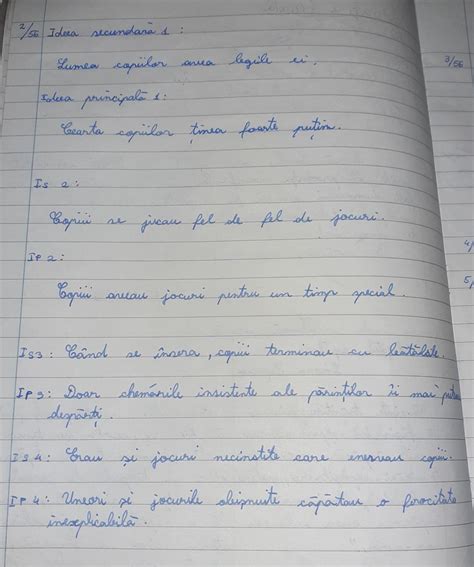 2/56 Ideea secundară 1 :
Lumea copiilor avea legile ei.
3/56
Ideea principală 1:
Cearta copiilor ținea foarte puțin.
Is 2:
Copiii se jucau fel de fel de jocuri.
4/
IP 2:
5/
Copiii aveau jocuri pentru un timp special.
IS3: Când se însera, copiii terminau cu
IP 3: Doar chemările insistente ale părinților îi mai
despărți.
IS 4: Erau și jocuri necinstite care enervau copiii.
IP 4: Uneori și jocurile obișnuite căpătau o ferocitate
inexplicabilă.